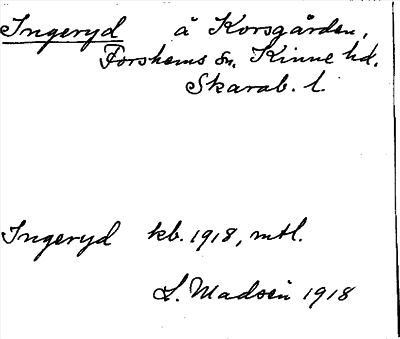 Ingeryd å Korsgården,
Forshems sn. Kinne hd.
Skarab. l.
Ingeryd kb. 1918, mtl.
S. Madsén 1918